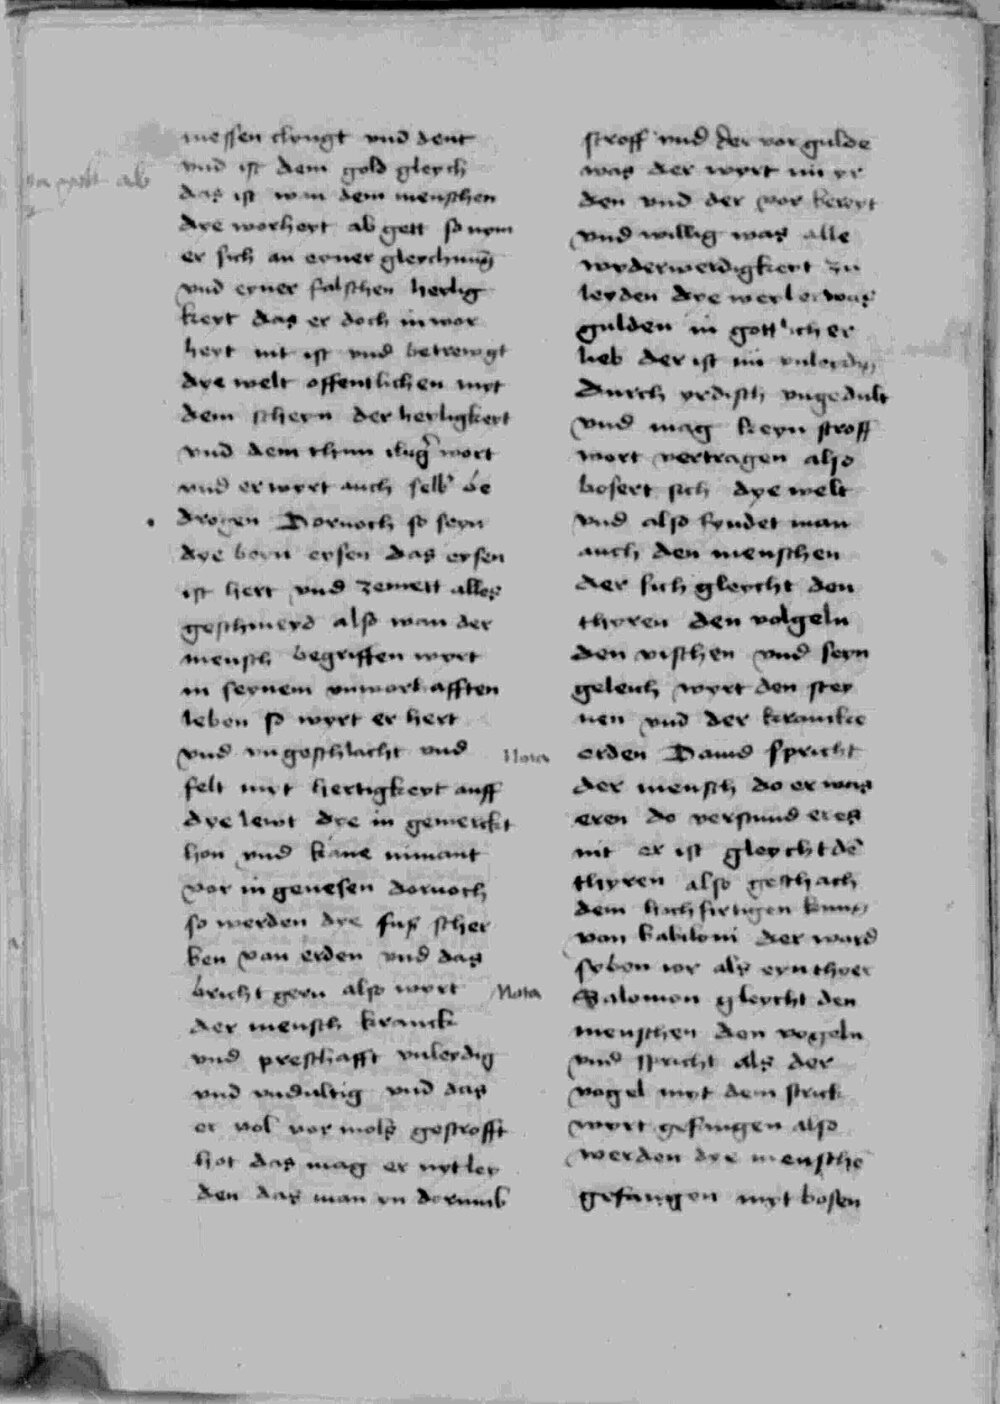 messen clyngt vnd dent
vnd ist dem gold gleych
das ist wan dem menschen
dye worheyt ab gett so nym
er sich an eyner gleychnug
vnd eyner falschen heylig
keyt das er doch in wor
heyt nit ist vnd betrewgt
dye welt offentlichen myt
dem scheyn der heyligkeyt
vnd dem thun wort
vnd er wyrt auch selb be
drogen Dornoch so seyn
dye beyn eysen das eysen
ist hert vnd zemett alles
geschmeyd also wan der
mensch begriffen wyrt
in seynem vnworhafften
leben so wyrt er hert
vnd vngeschlacht vnd
felt myt hertigkeyt auff
dye lewt dye in gemerckt
hon vnd kane nimant
vor in genesen dornoch
so werden dye fuß scher
ben van erden vnd das
bricht gern also wyrt
der mensch kranck
vnd preschafft vnleydig
vnd vndultig vnd das
er vol vor mols gestrofft
hot das mag er nyt ley
den das man yn dorumb
stroff vnd der vor gulde
was der wyrt nu yr
den vnd der vor bereyt
vnd willig was alle
wyderwerdigkeyt zu
leyden dye weyl er was
gulden in gottlicher
lieb der ist nu vnleydig
durch yrdisch vngedult
vnd mag keyn stroff
wort vertragen also
bosert sich dye welt
vnd also fyndet man
auch den menschen
der sich gleycht den
thyren den volgeln
den vischen vnd seyn
geleich wyrt den stey
nen vnd der krancke
Nota erden Dauid spricht
der mensch do er was
eren do verstund er es
nit er ist gleycht dē
thyren also geschach
dem hochfirtigen kunig
van babiloni der ward
syben ior als eyn thyer
Nota Salomon gleycht den
menschen den vogeln
vnd spricht als der
vogel myt dem strick
wyrt gefangen also
werden dye menschē
gefangen myt bosen